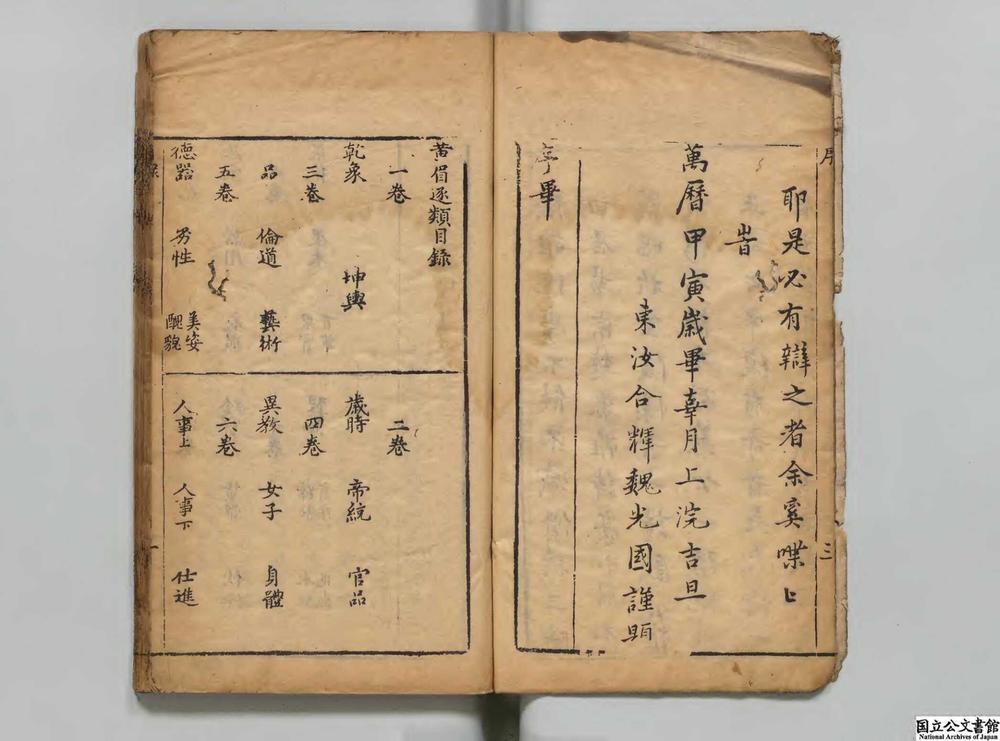 序
三
耶是必有辯之者余奚喋〻
峕
萬曆甲寅歲畢辜月上浣吉旦
東汝合輝魏光國謹題
序畢
黃眉逐類目錄
一卷
二卷
乾象 坤輿
歲時 帝統 官品
三卷
四卷
品 倫道 藝術
異教 女子 身體
五卷
六卷
德器 男性 美姿 醜貌
人事上 人事下 仕進
一
国立公文書館
National Archives of Japan